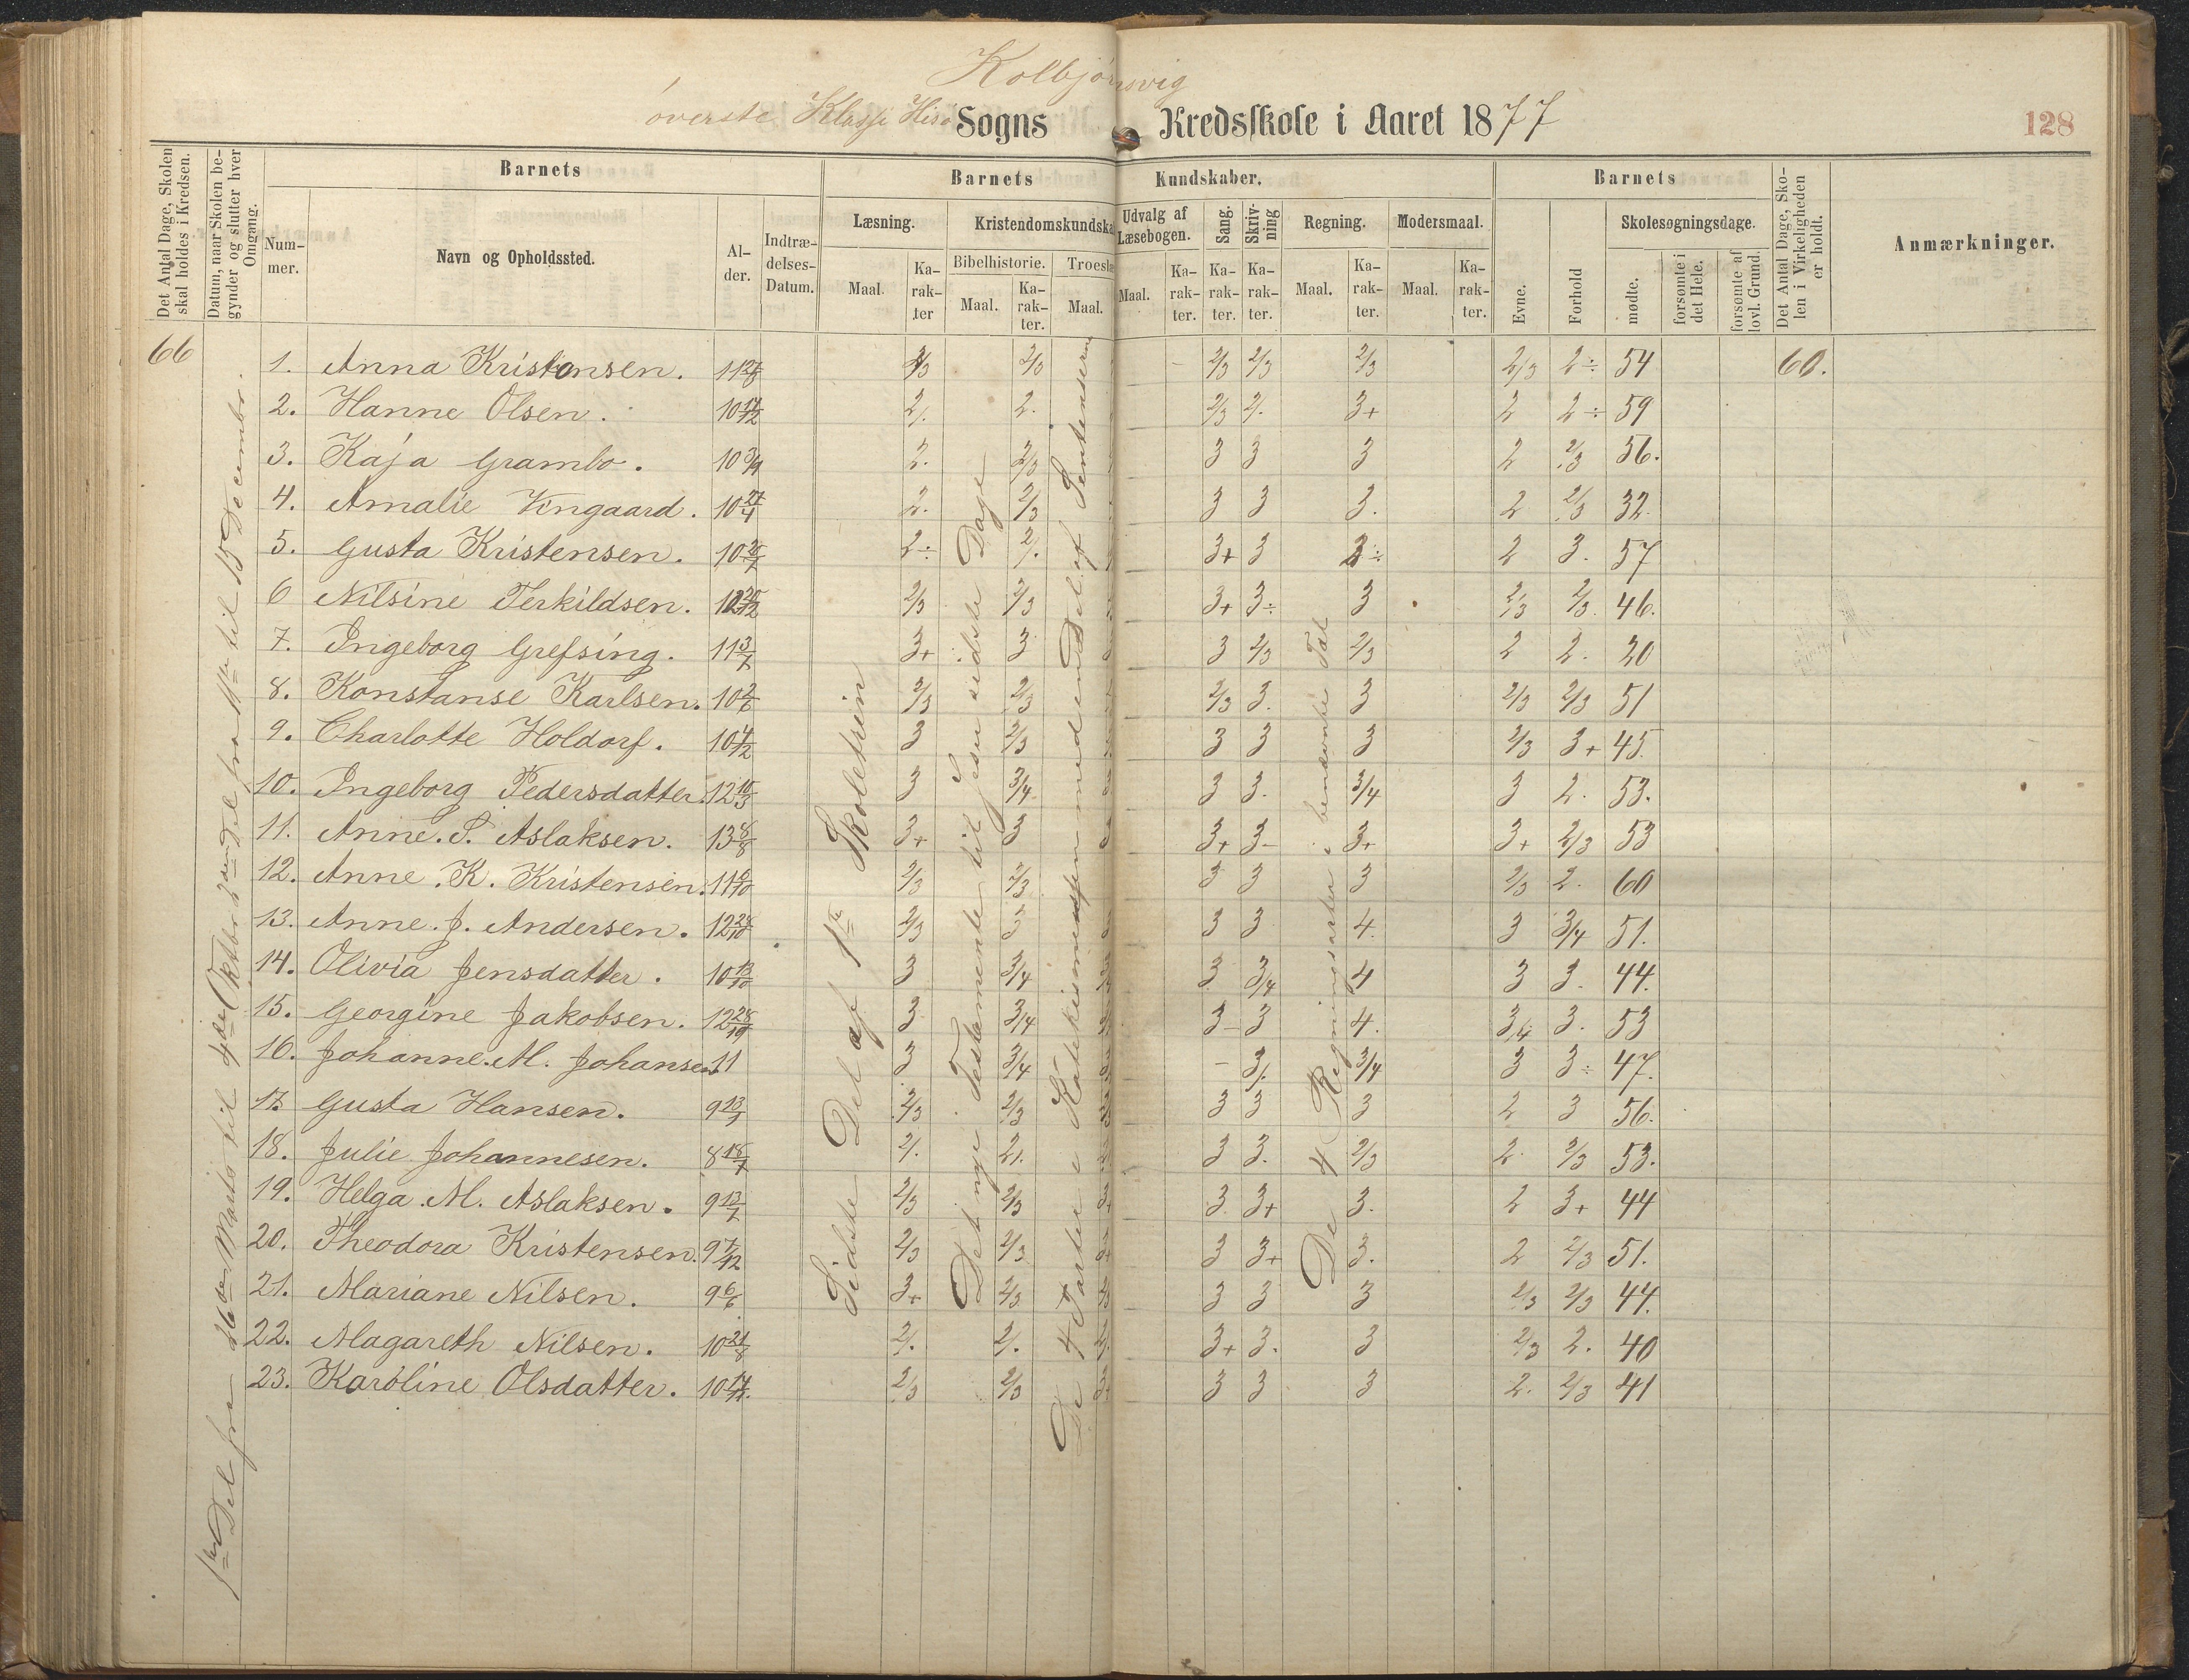 Kolbjörnsvig
överste Klasse Hisö Sogns Kredsskole i Aaret 1877
128
Det Antal Dage, Skolen skal holdes i Kredsen.
Datum, naar Skolen begynder og slutter hver Omgang.
Barnets
Nummer.
Navn og Opholdssted.
Alder.
Indtrædelses-Datum.
Barnets Kundskaber.
Læsning.
Maal.
Karakter
Kristendomskundska
Bibelhistorie.
Maal.
Karakter.
Troeslæ
Maal.
Udvalg af Læsebogen.
Maal.
Karakter.
Sang.
Karakter.
Skrivning
Karakter.
Regning.
Maal.
Karakter.
Modersmaal.
Maal.
Karakter.
Barnets
Evne.
Forhold
Skolesøgningsdage.
mødte.
forsømte i det Hele.
forsømte af lovl. Grund.
Det Antal Dage, Skolen i Virkeligheden er holdt.
Anmærkninger.
66
1ste Del fra 26de Marts til 4de Oktbr 2den Del fra 11te til 15 Decembr.
Sidste Del af 1ste Skoletrin
Det nye Testamente til Jesu sidste Dage
De 4 Parter i Katekismen med en Del af Sentenserne
De 4 Regningsarter i benævnte Tal
1. Anna Kristensen. 11 2/3 2/3 2/3 2/3 2/3 2/3 2÷ 54 60.
2. Hanne Olsen. 10 2/. 2. 2/3 2/. 3+ 2 2÷ 59
3. Kaja Grambo. 10 3/9 2. 2/3 3 3 3 2 2/3 56.
4. Amalie Vingaard. 10 27/4 2. 2/3 3 3 3. 2 2/3 32.
5. Gusta Kristensen. 10 2÷ 2/. 3+ 3 3÷ 2 3. 57
6 Nilsine Terkildsen. 2/3 2/3 3+ 3÷ 3 2/3 2/3. 46.
7. Ingeborg Grefsing. 11 3/7 3+ 3 3 2/3 2/3 2 2. 20
8. Konstanse Karlsen. 10 2/6 2/3 2/3 2/3 3. 3 2/3 2/3 51
9. Charlotte Holdorf. 10 4/12 3 2/3 3 3 3 2/3 3+ 45.
10. Ingeborg Pedersdatter. 12 10/3 3 3/4 3 3. 3/4 3 2. 53.
11. Anne. P. Aslaksen. 13 8/8 3+ 3 3+ 3- 3+ 3+ 2/3 53
12. Anne. K. Kristensen. 11 6/10 2/3 2/3 3 3 3 2/3 2. 60
13. Anne. J. Andersen. 12 28/10 2/3 3 3 3 4. 3 3/4 51.
14. Olivia Jensdatter. 10 13/10 3 3/4 3 3/4 4 3 3. 44.
15. Georgine Jakobsen. 12 28/10 3 3/4 3- 3 4. 3/4 3. 53
16. Johanne. M. Johansen 11 3 3/4 - 3/. 3/4 3 3÷ 47.
17. Gusta Hansen. 9 13/9 2/3 2/3 3 3 3 2 3 56.
18. Julie Johannesen. 8 18/7 2/. 2/. 3 3. 2/3 2. 2/3 53.
19. Helga. M. Aslaksen. 9 13/7 2/3 2/3 3. 3+ 3. 2 3+ 44
20. Theodora Kristensen. 9 7/12 2/3 2/3 3 3+ 3. 2 2/3 51.
21. Mariane Nilsen. 9 6/6 3+ 2/3 3 3 3 2/3 2/3 44.
22. Magareth Nilsen. 10 21/8 2/. 2/. 3+ 3. 3 2/3 2. 40
23. Karoline Olsdatter. 10 2/3 2/3 3 3 3 2. 2/3 41